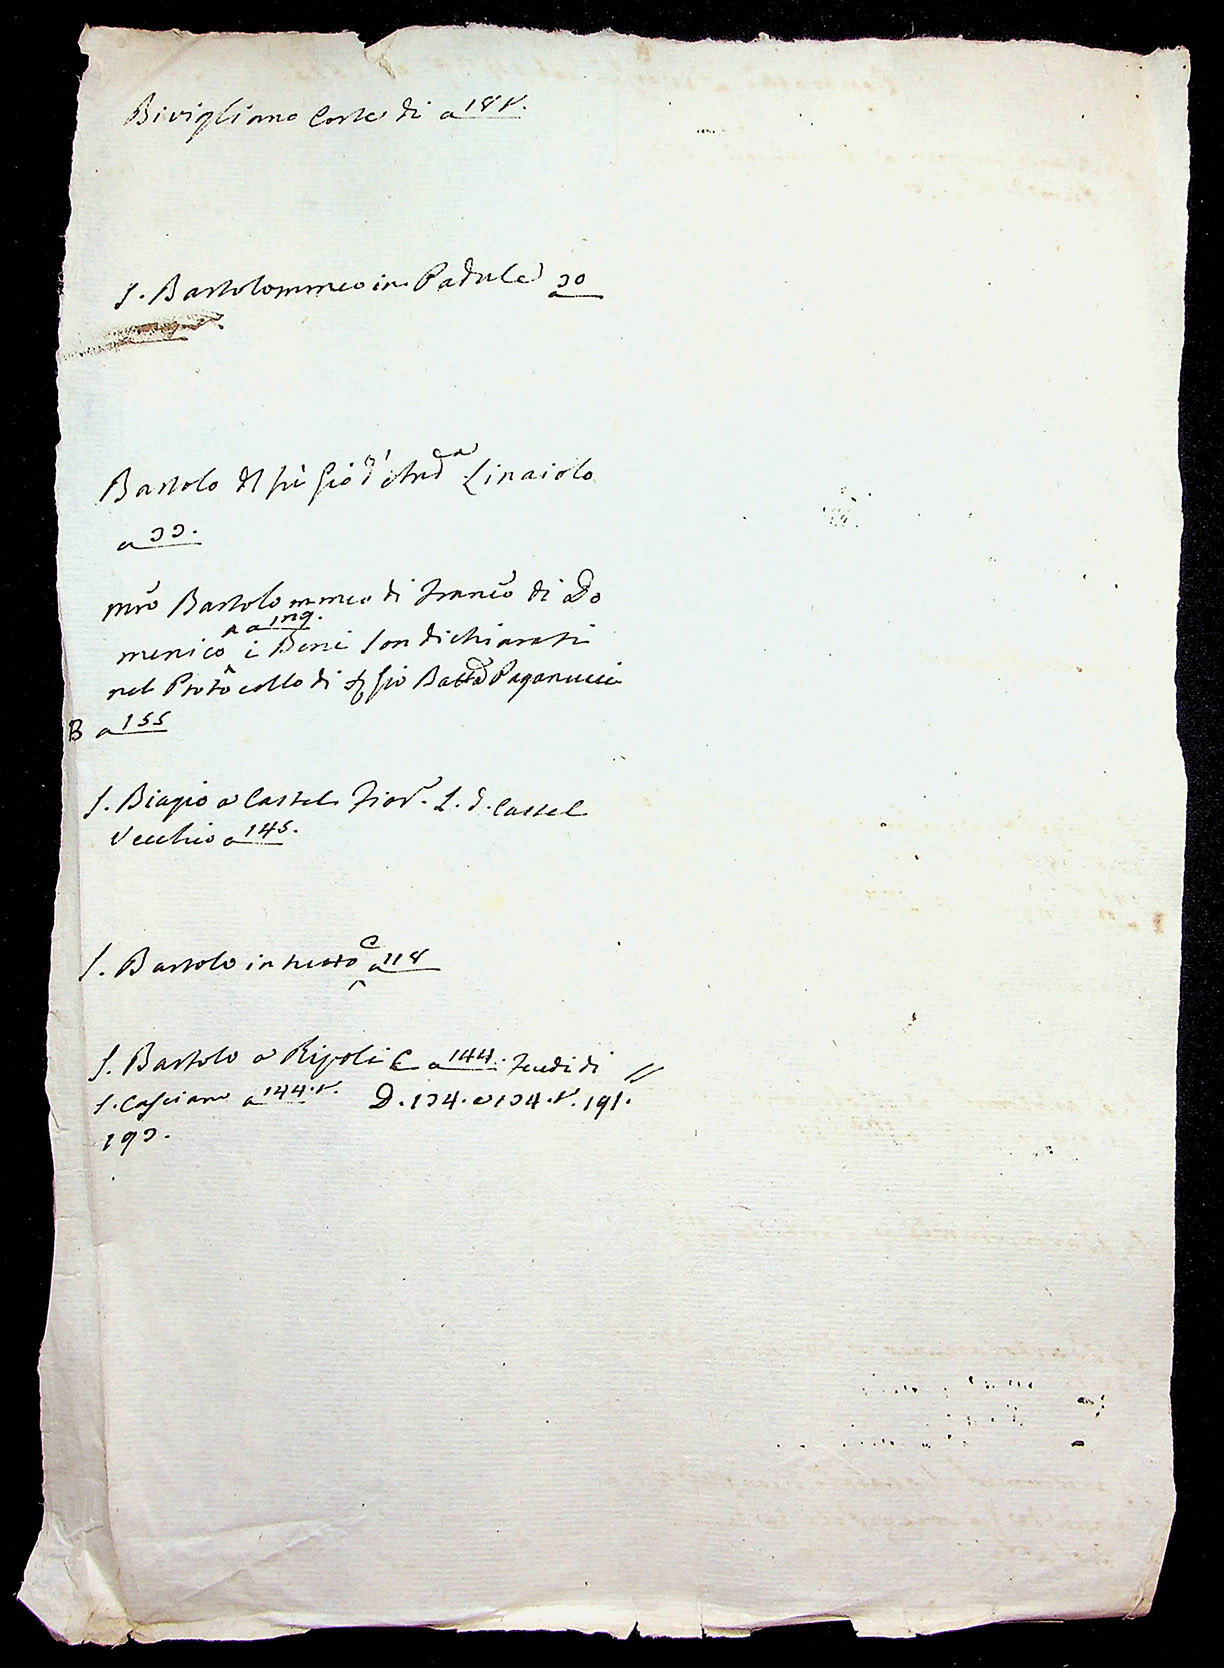 Bivigliano Corte di a 18 v.
S. Bartolommeo in Padule 30
Bartolo del fù Gio: d'And.ª Linaiolo
a 33.
mro Bartolommeo di Franc̃o di Do
A a 129.
menico i Beni son dichiarati
nel Protocollo di Gio Batta Paganucci
B a 155
S. Biagio a Castel Fior. L. d. Castel
Vecchio a 145.
S. Bartolo in tutto C a 118
S. Bartolo a Ripoli C a 144. di
S. Casciano a 144. v. D. 134. e 134. v. 191.
193.